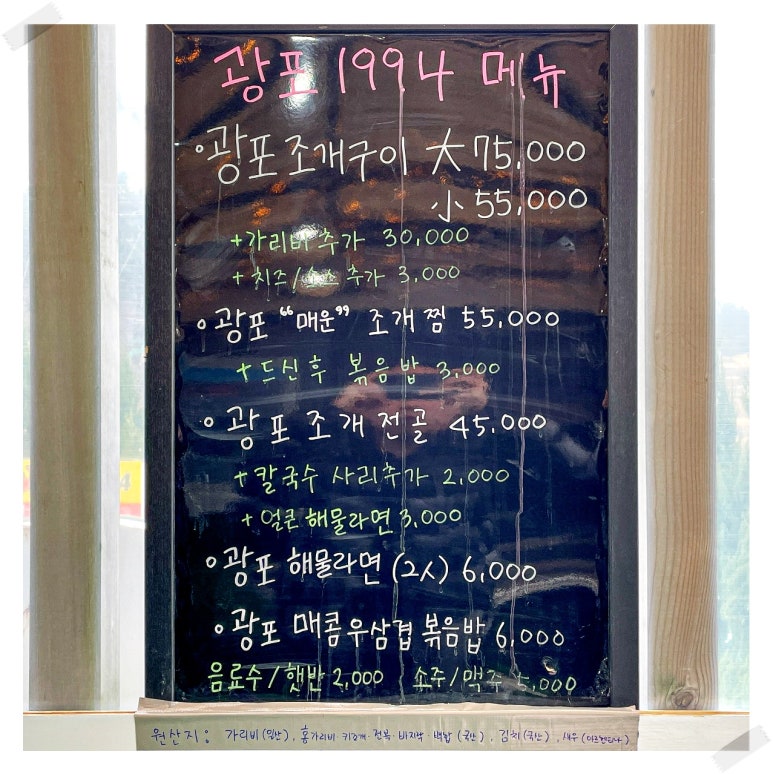 광포 1994 메뉴
광포 조개구이 大 75,000
小 55,000
+가리비 추가 30,000
+ 치즈/소스 추가 3,000
광포 "매운" 조개찜 55,000
+ 드신 후 볶음밥 3,000
광포 조개 전골 45,000
+ 칼국수 사리추가 2,000
+ 얼큰 해물라면 3,000
광포 해물라면 (2人) 6,000
광포 매콤우삼겹 볶음밥 6,000
음료수/햇반 2,000 소주/맥주 5,000
원산지: 가리비(일본), 홍가리비·키조개·전복·바지락·백합 (국산), 김치(국산), 새우(아르헨티나)